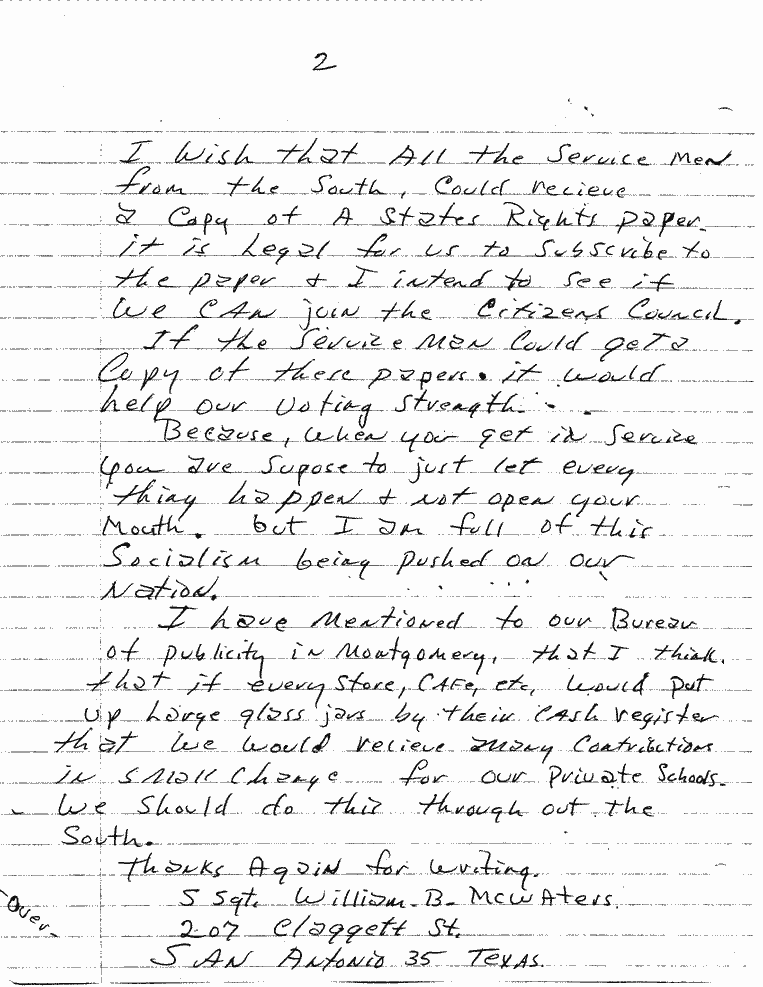 2
I Wish that All the Service Men
from the South, Could recieve
a Copy of A States Rights paper.
it is Legal for us to Subscribe to
the paper & I intend to see if
We CAN join the Citizens Council.
If the Service Men Could get a
Copy of these papers. it would
help our Voting Strength.
Because, When you get in Service
you are Supose to just let every
thing happen & not open your
Mouth. but I am full of this
Socialism being pushed on our
Nation.
I have Mentioned to our Bureau
of publicity in Montgomery, that I think.
that if every Store, CAFe, etc, Would put
up Large glass jars by their CAsh register
that We Would recieve many Contributions
in Small Change for our Private Schools.
We Should do this through out the
South.
Thanks Again for writing.
S Sgt. William. B. McWAters.
207 Claggett St.
SAN Antonio 35 TexAs.
Over-